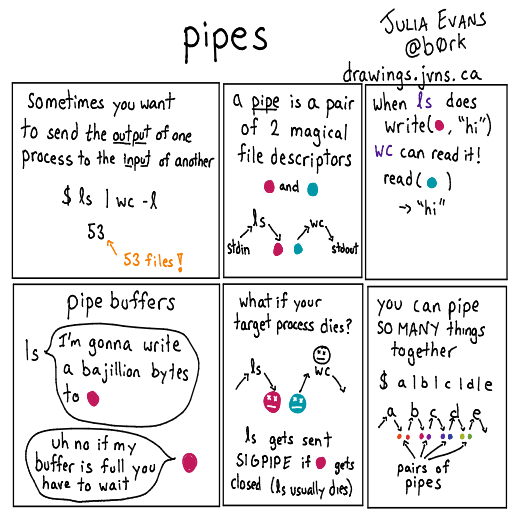 pipes
JULIA EVANS
@b0rk
drawings.jvns.ca
Sometimes you want
to send the output of one
process to the input of another
$ ls | wc -l
53
53 files!
a pipe is a pair
of 2 magical
file descriptors
and
ls
wc
stdin
stdout
when ls does
write( , "hi")
wc can read it!
read( )
→ "hi"
pipe buffers
ls
I'm gonna write
a bajillion bytes
to
uh no if my
buffer is full you
have to wait
what if your
target process dies?
ls
wc
ls gets sent
SIGPIPE if gets
closed (ls usually dies)
you can pipe
SO MANY things
together
$ a|b|c|d|e
a b c d e
pairs of
pipes